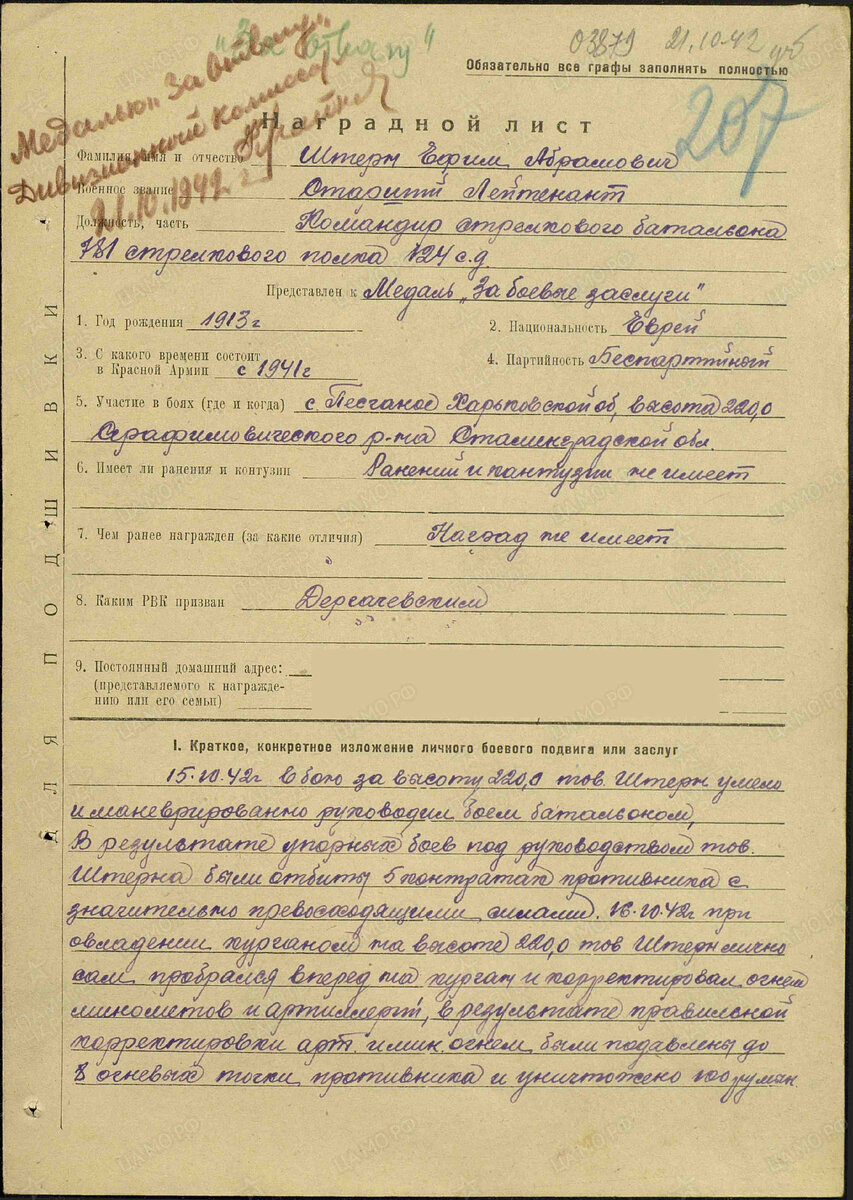 "За отвагу"
03879 21.10.42
Обязательно все графы заполнять полностью
207
Медалью "За отвагу"
Дивизионный комиссар
21.10.1942 г
Наградной лист
Фамилия, имя и отчество Штерн Ефим Абрамович
Военное звание Старший Лейтенант
Должность, часть Командир стрелкового батальона
781 стрелкового полка 124 с.д
Представлен к Медаль "За боевые заслуги"
1. Год рождения 1913 г
2. Национальность Еврей
3. С какого времени состоит
в Красной Армии с 1941 г
4. Партийность Беспартийный
5. Участие в боях (где и когда) с Песчаное Харьковской об, высота 220,0
Серафимовического р-на Сталинградской обл.
6. Имеет ли ранения и контузии Ранений и кантузии не имеет
7. Чем ранее награжден (за какие отличия) Наград не имеет
8. Каким РВК призван Дергачевским
9. Постоянный домашний адрес:
(представляемого к награжде-
нию или его семьи)
ДЛЯ ПОДШИВКИ
I. Краткое, конкретное изложение личного боевого подвига или заслуг
15.10.42г в бою за высоту 220,0 тов. Штерн умело
и маневрированно руководил боем батальоном,
В результате упорных боев под руководством тов.
Штерна были отбиты 5 контратак противника с
значительно превосходящими силами. 16.10.42г при
овладении курганом на высоте 220,0 тов Штерн лично
сам пробрался вперед на курган и корректировал огнем
минометов и артиллерии, в результате правильной
корректировки арт. и мин. огнем были подавлены до
8 огневых точки противника и уничтожено 100 румын